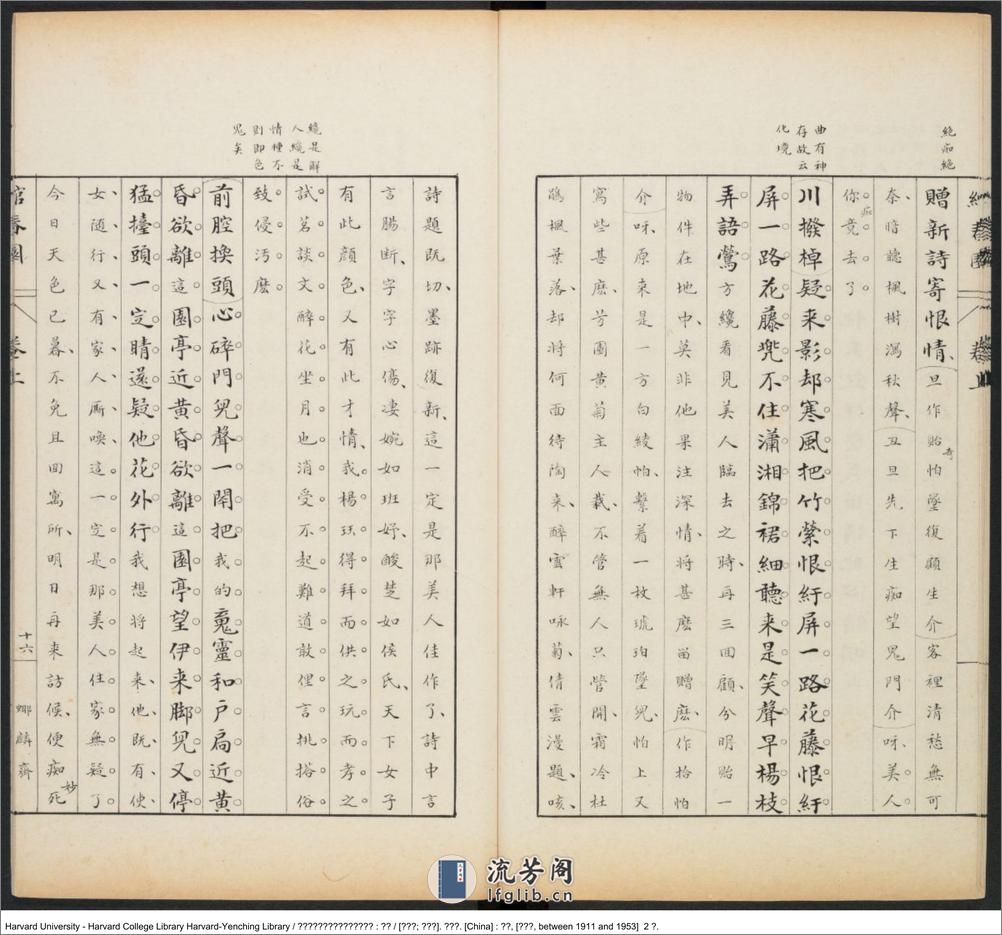 絶痴絶
曲有神
存故云
化境
贈新詩寄恨情、旦作貽帕墜復顧生介客裡清愁無可
奇
奈、暗聽楓樹瀉秋聲、丑旦先下生痴望鬼門介呀、美人
你竟去了
痴
川撥棹疑来影却寒風把竹縈恨紆屏一路花藤恨紆
屏一路花藤兠不住瀟湘錦裙細聽来是笑聲早楊枝
弄語鶯方纔看見美人臨去之時、再三囬顧、分明貽一
物件在地中、莫非他果注深情、將甚麽畱贈麽作拾帕
介呀、原来是一方白綾帕、繫着一枚琥珀墜兒、怕上又
寫些甚麽芳圃黄菊主人栽不管無人只管開、霜冷杜
鵑楓葉落、却将何面待陶来、醉靈軒咏菊、倩雲漫題、咳、
纔是解
人纔是
情種不
則即色
鬼矣
詩題既切、墨跡復新、這一定是那美人佳作了、詩中言
言腸断、字字心傷、凄婉如班妤、酸楚如侯氏、天下女子
有此顔色、又有此才情、我楊珏得拜而供之玩而考之
試茗談文醉花坐月也消受不起難道敢俚言挑撘俗
致侵汚麽
前腔換頭心碎門兒聲一閉把我的䰟靈和户扃近黄
昏欲離這園亭近黄昏欲離這園亭望伊来脚兒又停
猛擡頭一定睛遂疑他花外行我想将起来、他既、有、使、
女、随、行、又、有、家、人、厮、喚、這、一、定、是、那、美、人、住、家、無、疑、了、
今日天色已暮、不免且囬寓所、明日再来訪候、便痴死
妙
卷上
十六
卷上
流芳阁
lfglib.cn
Harvard University - Harvard College Library Harvard-Yenching Library / ??????????????? : ?? / [???; ???]. ???. [China] : ??, [???, between 1911 and 1953] 2 ?.